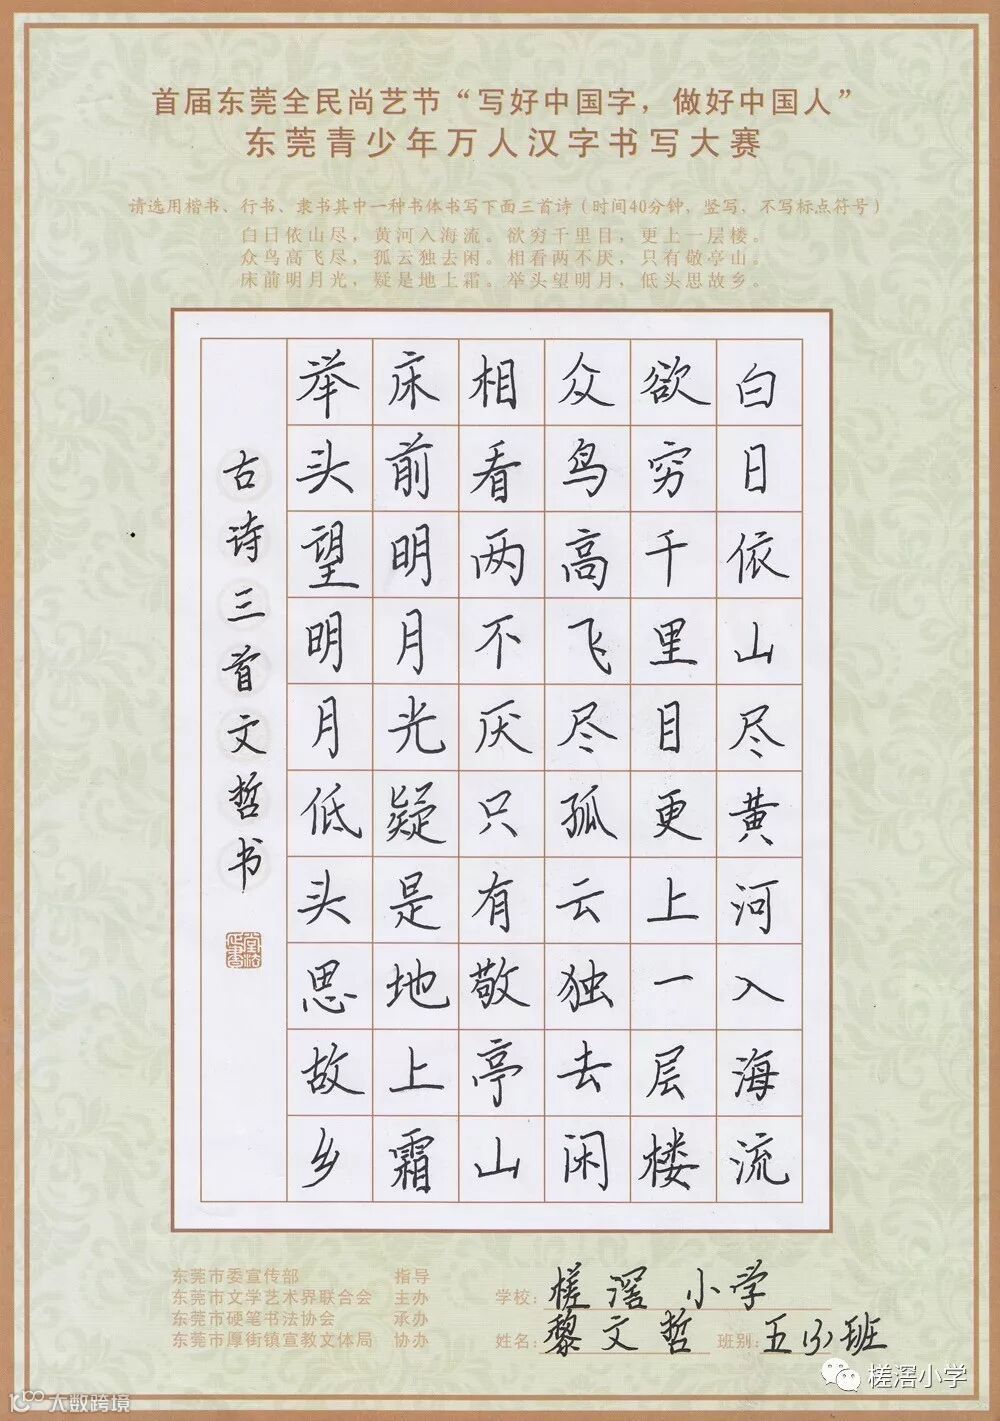 首届东莞全民尚艺节“写好中国字，做好中国人”
东莞青少年万人汉字书写大赛
请选用楷书、行书、隶书其中一种书体书写下面三首诗（时间40分钟，竖写、不写标点符号）
白日依山尽，黄河入海流。欲穷千里目，更上一层楼。
众鸟高飞尽，孤云独去闲。相看两不厌，只有敬亭山。
床前明月光，疑是地上霜。举头望明月，低头思故乡。
白日依山尽黄河入海流
欲穷千里目更上一层楼
众鸟高飞尽孤云独去闲
相看两不厌只有敬亭山
床前明月光疑是地上霜
举头望明月低头思故乡
古诗三首文哲书
东莞市委宣传部 指导
东莞市文学艺术界联合会 主办
东莞市硬笔书法协会 承办
东莞市厚街镇宣教文体局 协办
学校：槎滘小学
姓名：黎文哲 班别：五(3)班
槎滘小学
大数跨境